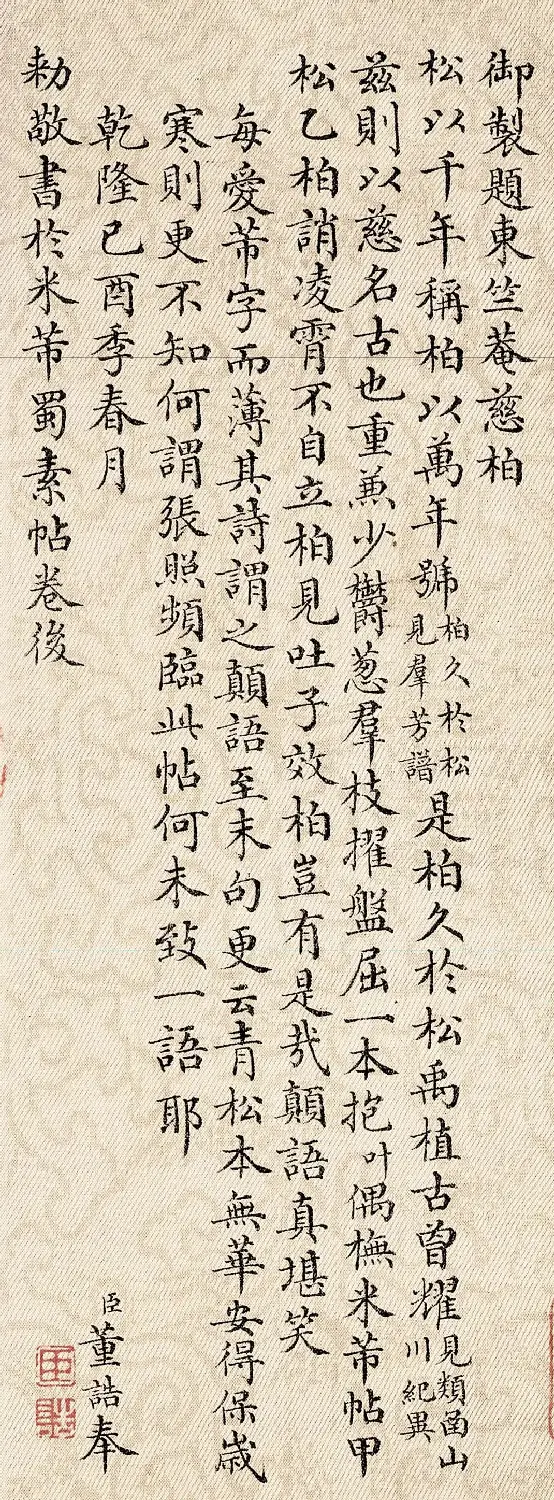 御製題東竺菴慈柏
松以千年稱柏以萬年號柏久於松見羣芳譜是柏久於松禹植古曾耀見類函山川紀異
茲則以慈名古也重兼少欝葱羣枝擢盤屈一本抱叶偶橅米芾帖甲
松乙柏誚凌霄不自立柏見吐子效柏豈有是哉顛語真堪笑
每愛芾字而薄其詩謂之顛語至末句更云青松本無華安得保歲
寒則更不知何謂張照頻臨此帖何未致一語耶
乾隆己酉季春月
臣董誥奉
勅敬書於米芾蜀素帖卷後